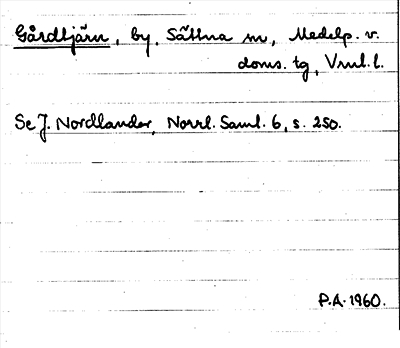 Gårdtjärn, by, Sättna sn, Medelp. v.
doms. tg, Vnl. l.
Se J. Nordlander, Norrl. Saml. 6, s. 250.
P.A. 1960.